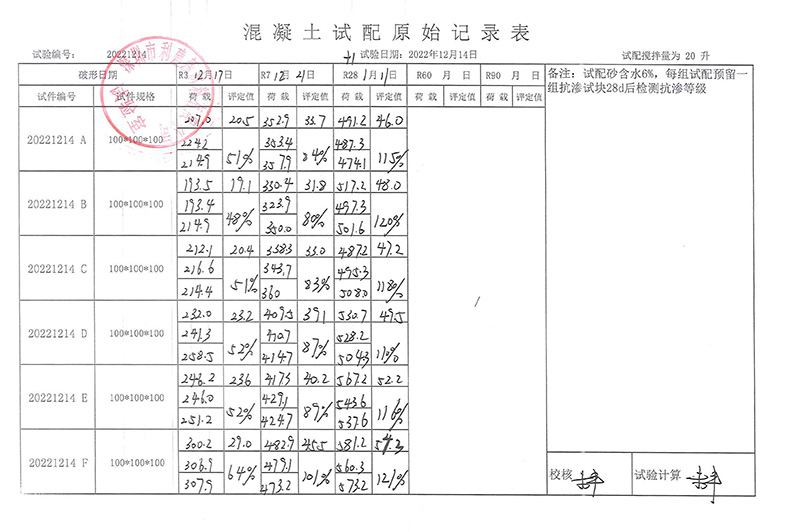 混凝土试配原始记录表
试验编号： 20221214 试验日期：2022年12月14日 试配搅拌量为 20 升
破形日期 R3 12月17日 R7 12月21日 R28 1月11日 R60 月 日 R90 月 日 备注：试配砂含水6%，每组试配预留一
组抗渗试块28d后检测抗渗等级
试件编号 试件规格 荷 载 评定值 荷 载 评定值 荷 载 评定值 荷 载 评定值 荷 载 评定值
20221214 A 100*100*100 207.0 20.5 352.9 33.7 491.2 46.0
224.2 353.4 487.3
214.9 51% 357.9 84% 474.1 115%
20221214 B 100*100*100 193.5 19.1 330.4 31.8 517.2 48.0
193.4 323.9 497.3
214.9 48% 350.0 80% 501.6 120%
20221214 C 100*100*100 212.1 20.4 358.3 33.0 487.2 47.2
216.6 343.7 495.3
214.4 51% 360 83% 508.0 118%
20221214 D 100*100*100 232.0 23.2 409.5 39.1 530.7 49.5
241.3 410.7 528.2
258.5 52% 414.7 87% 504.3 110%
20221214 E 100*100*100 246.2 23.6 417.5 40.2 567.2 52.2
246.0 429.1 543.6
251.2 52% 424.7 89% 537.6 116%
20221214 F 100*100*100 300.2 29.0 482.9 45.5 581.2 54.3
306.9 479.1 560.3
307.9 64% 473.2 101% 573.2 121%
校核 试验计算